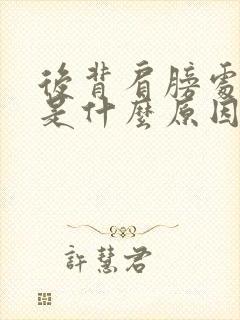 後背肩膀處
是什麼原因
許慧君